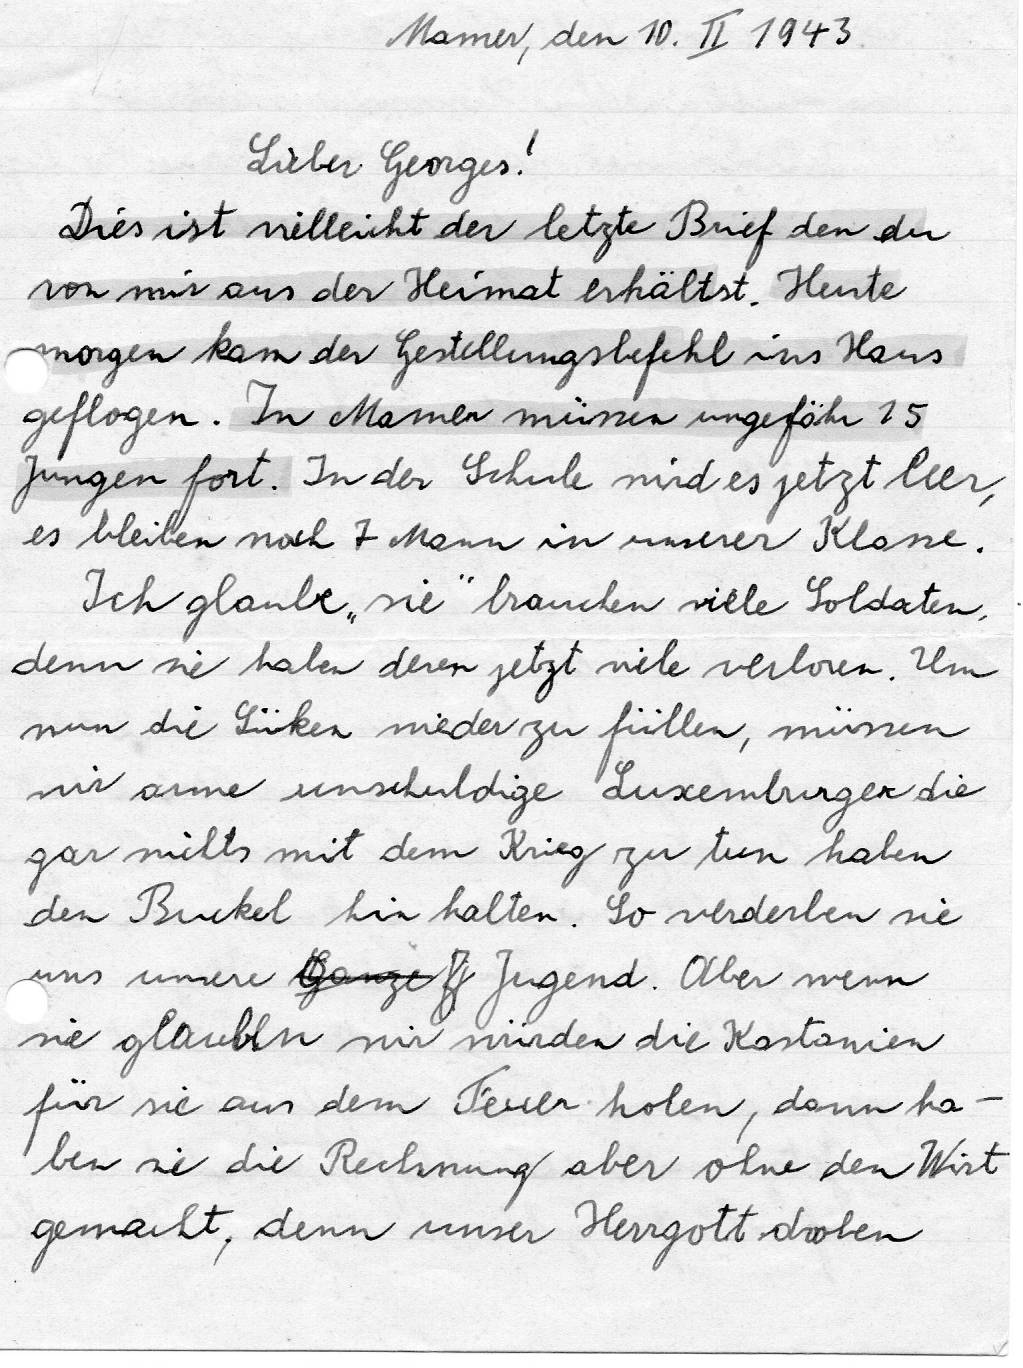 Mamer, den 10. II 1943.
Lieber Georges!
Dies ist vielleicht der letzte Brief den du
von mir aus der Heimat erhältst. Heute
morgen kam der Gestellungsbefehl ins Haus
geflogen. In Mamer müssen ungefähr 15
Jungen fort. In der Schule wird es jetzt leer,
es bleiben noch 7 Mann in unserer Klasse.
Ich glaube „sie" brauchen viele Soldaten,
denn sie haben deren jetzt viele verloren. Um
nun die Lüken wieder zu füllen, müssen
wir arme unschuldige Luxemburger die
gar nichts mit dem Krieg zu tun haben
den Buckel hin halten. So verderben sie
uns unsere Ganze J Jugend. Aber wenn
sie glauben wir würden die Kastanien
für sie aus dem Feuer holen, dann ha-
ben sie die Rechnung aber ohne den Wirt
gemacht, denn unser Herrgott droben